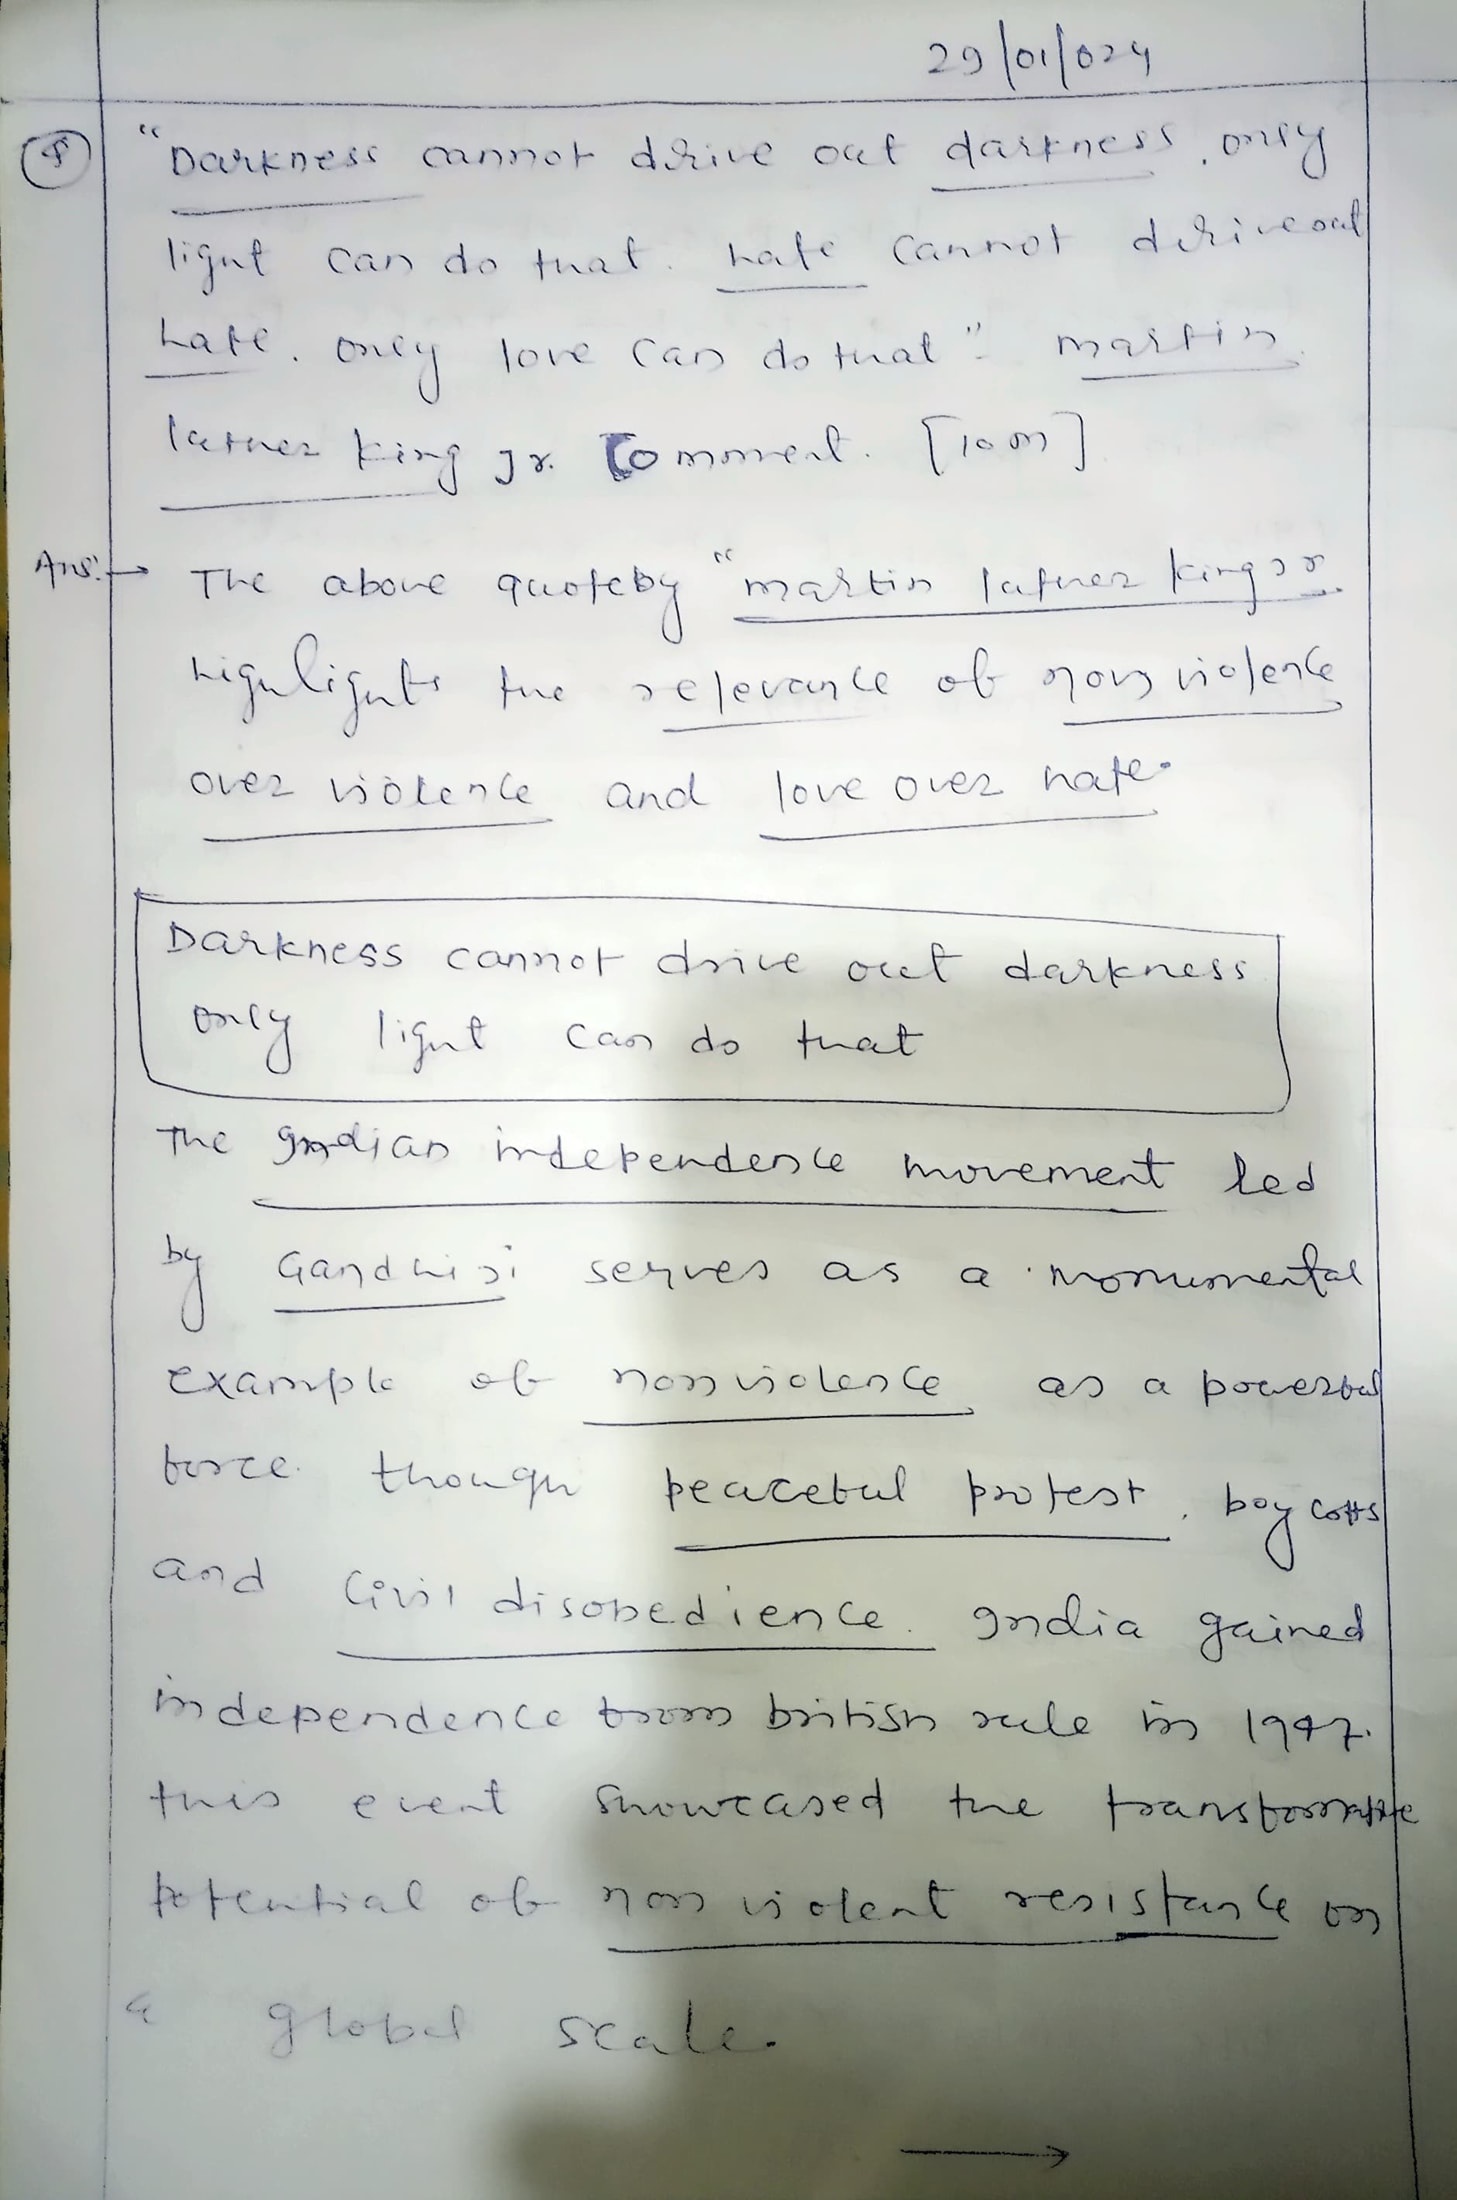 29/01/024
"Darkness cannot drive out darkness, only
light can do that. hate cannot drive out
hate. only love can do that" - martin
luther king Jr. Comment. [10m]
Ans:→ The above quote by "martin luther king Jr
highlights the relevance of non violence
over violence and love over hate.
Darkness cannot drive out darkness
only light can do that
The Indian independence movement led
by Gandhiji serves as a monumental
example of non violence as a powerful
force. though peaceful protest, boycotts
and Civil disobedience. India gained
independence from british rule in 1947.
this event showcased the transformative
potential of non violent resistance on
a global scale.
→